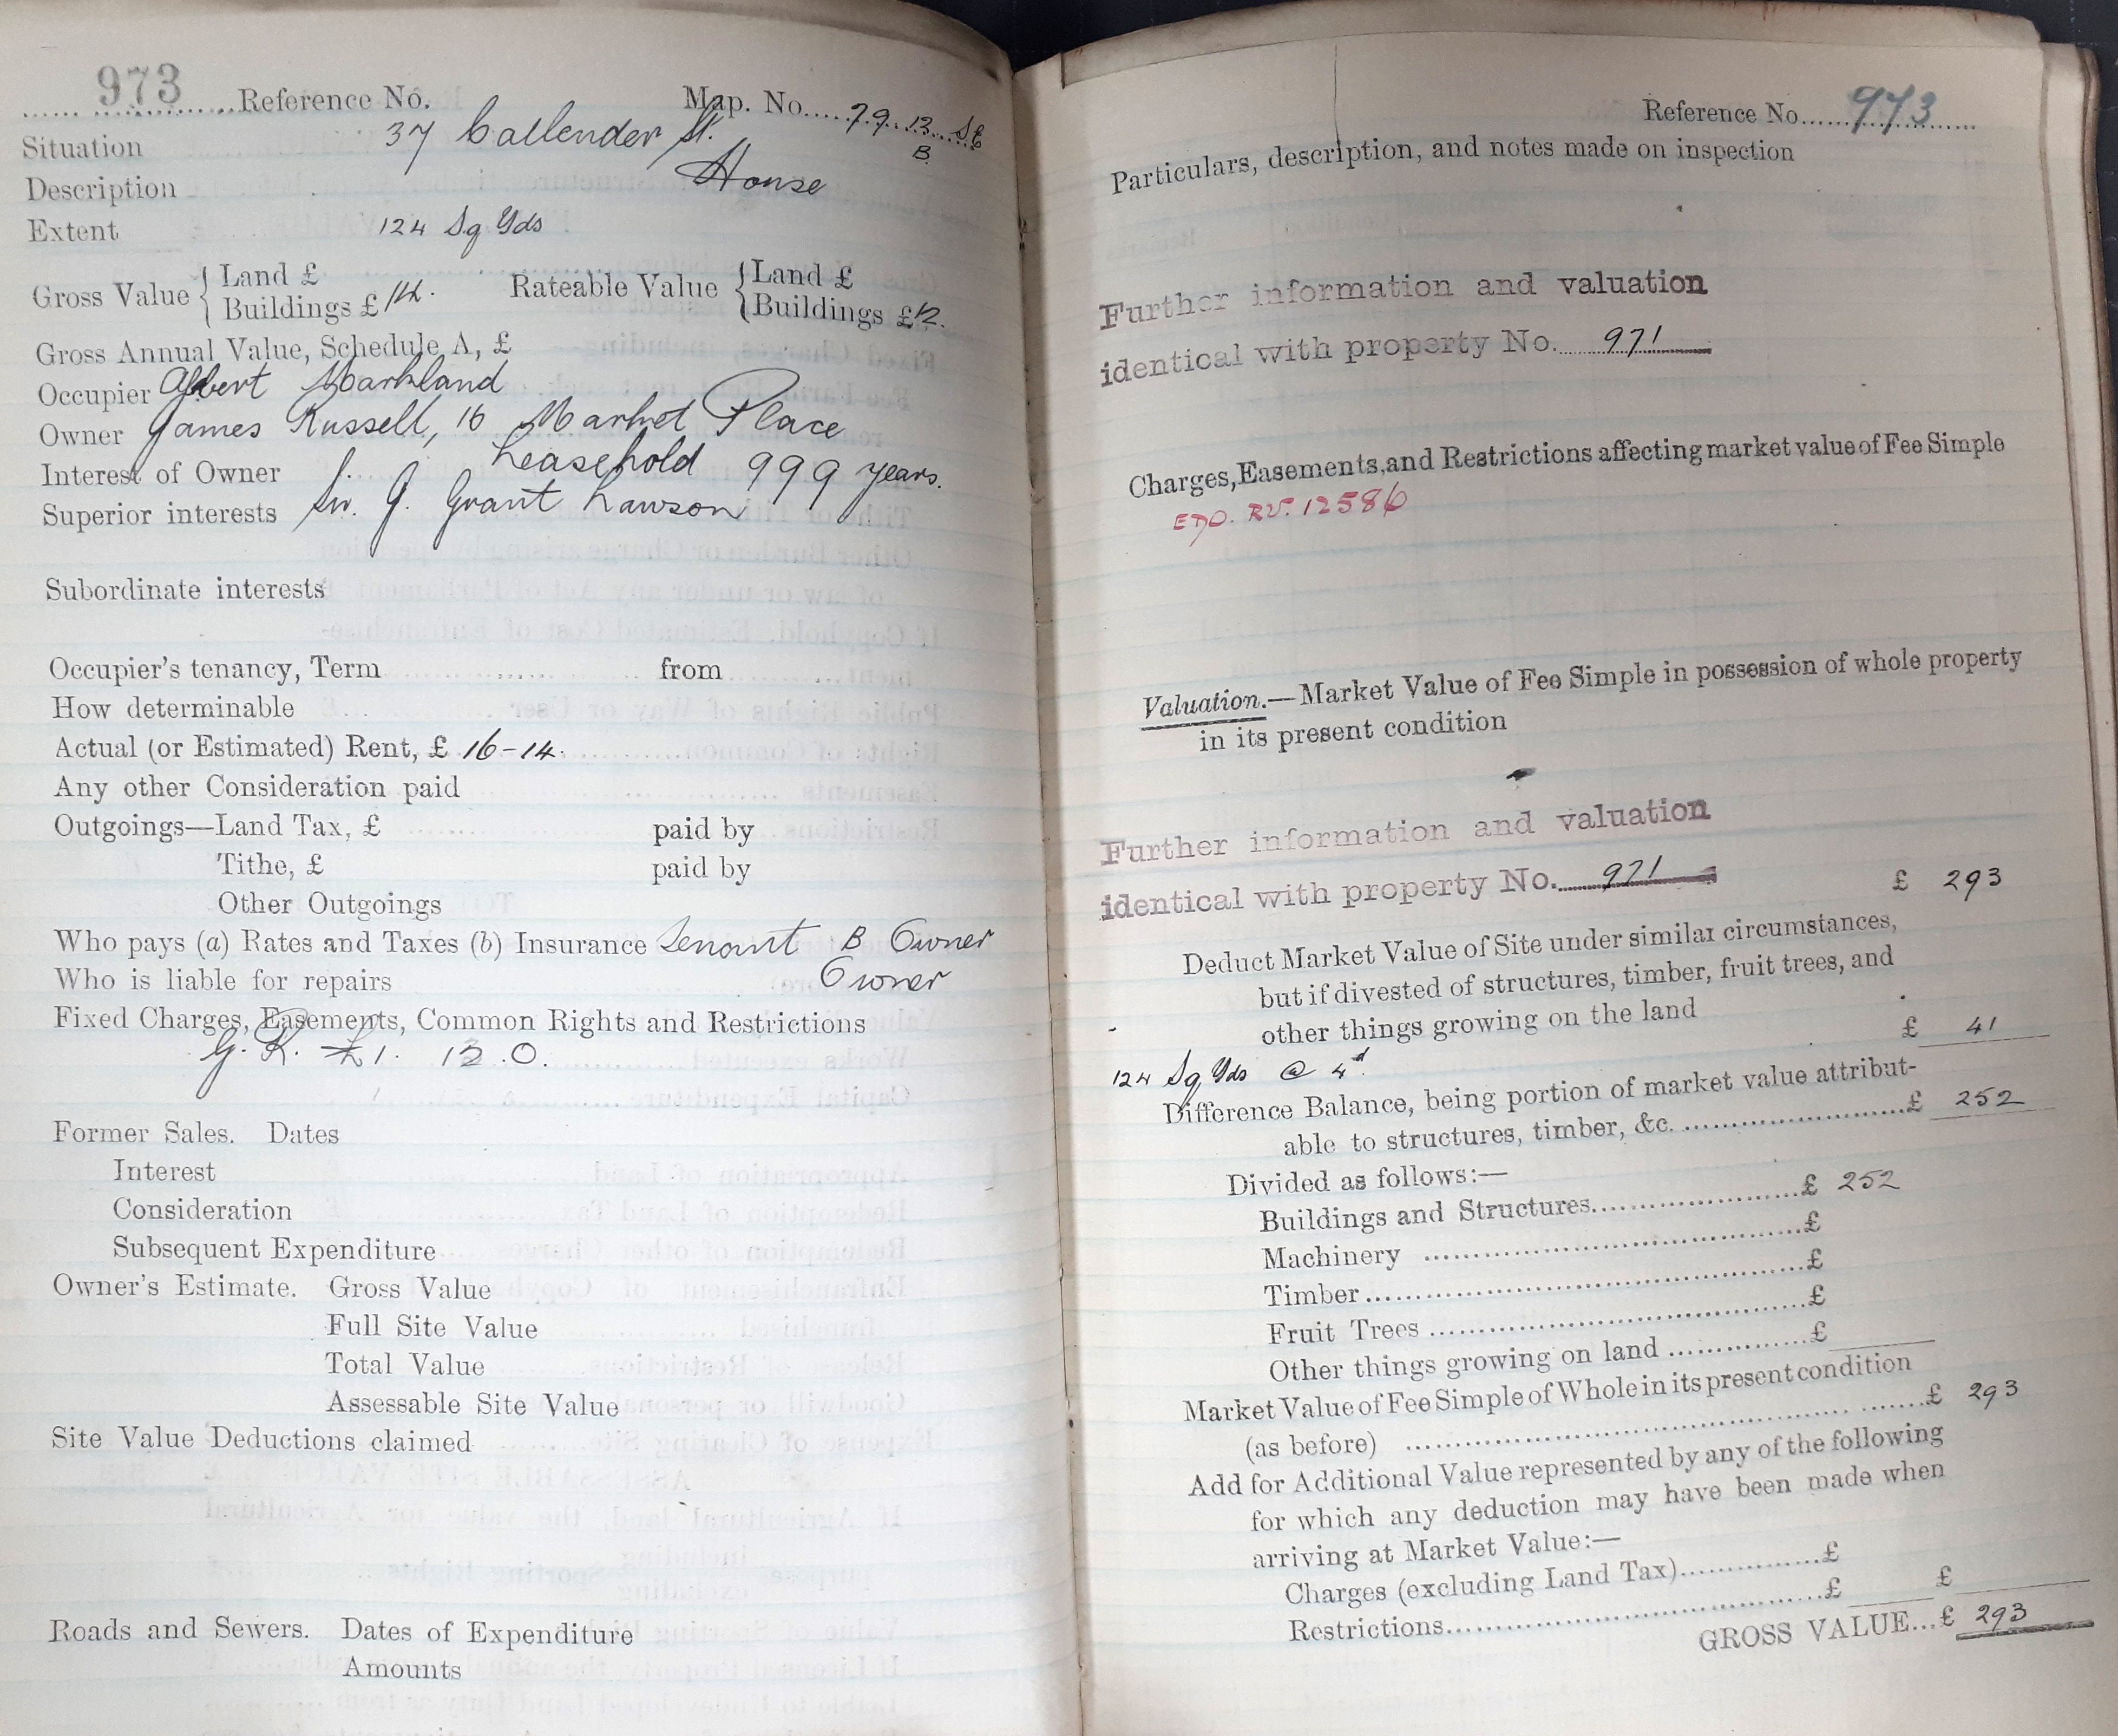 973 Reference No. Map. No. 79. 13. St
B.
Situation 37 Callender St.
Description House
Extent 124 Sq Yds
Gross Value { Land £
Buildings £ 14. Rateable Value { Land £
Buildings £ 12.
Gross Annual Value, Schedule A, £
Occupier Albert Markland
Owner James Russell, 16 Market Place
Interest of Owner Leasehold 999 years.
Superior interests Sir. J. Grant Lawson
Subordinate interests
Occupier's tenancy, Term from
How determinable
Actual (or Estimated) Rent, £ 16-14.
Any other Consideration paid
Outgoings—Land Tax, £ paid by
Tithe, £ paid by
Other Outgoings
Who pays (a) Rates and Taxes (b) Insurance Tenant B Owner
Who is liable for repairs Owner
Fixed Charges, Easements, Common Rights and Restrictions
G. R. £1. 13. 0.
Former Sales. Dates
Interest
Consideration
Subsequent Expenditure
Owner's Estimate. Gross Value
Full Site Value
Total Value
Assessable Site Value
Site Value Deductions claimed
Roads and Sewers. Dates of Expenditure
Amounts
Reference No. 973
Particulars, description, and notes made on inspection
Further information and valuation
identical with property No. 971
Charges, Easements, and Restrictions affecting market value of Fee Simple
EDO. RV. 12586
Valuation.—Market Value of Fee Simple in possession of whole property
in its present condition
Further information and valuation
identical with property No. 971 £ 293
Deduct Market Value of Site under similar circumstances,
but if divested of structures, timber, fruit trees, and
other things growing on the land £ 41
124 Sq Yds @ 4d.
Difference Balance, being portion of market value attribut-
able to structures, timber, &c. £ 252
Divided as follows:—
Buildings and Structures £ 252
Machinery £
Timber £
Fruit Trees £
Other things growing on land £
Market Value of Fee Simple of Whole in its present condition
(as before) £ 293
Add for Additional Value represented by any of the following
for which any deduction may have been made when
arriving at Market Value:—
Charges (excluding Land Tax) £
Restrictions £ £
GROSS VALUE... £ 293